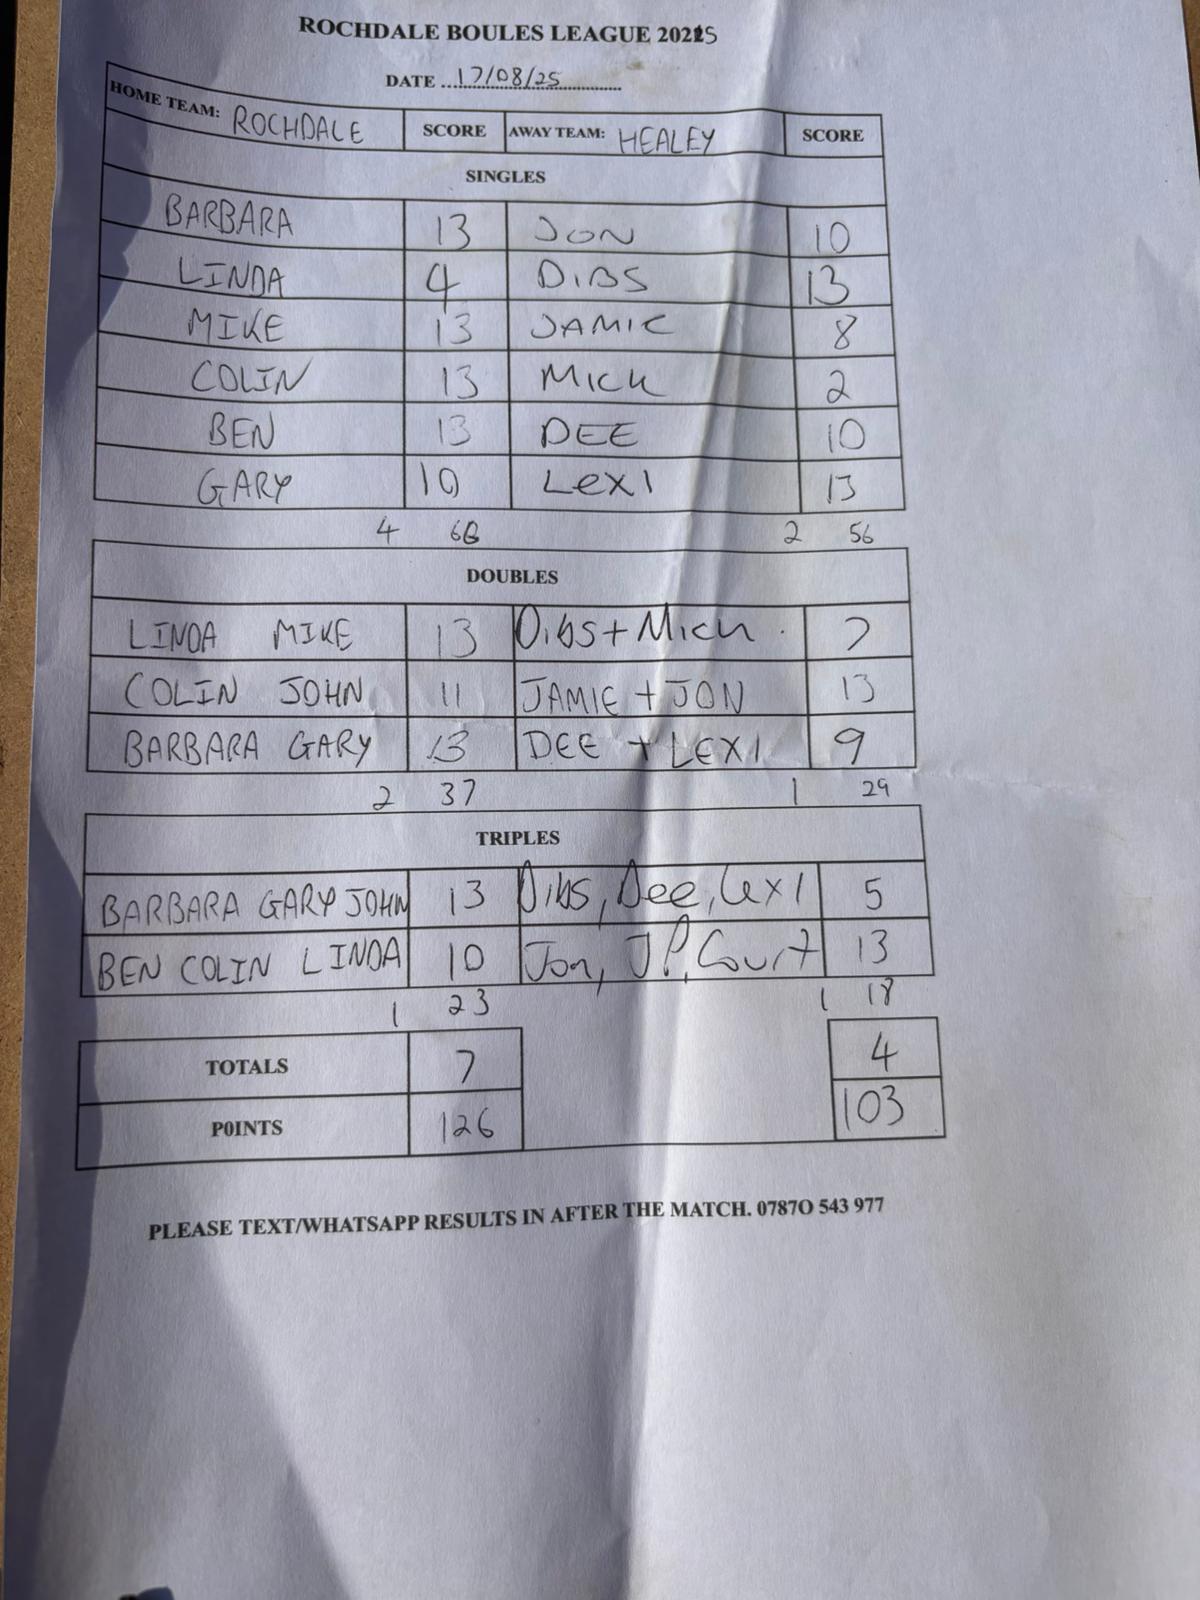 ROCHDALE BOULES LEAGUE 2025
DATE ...17/08/25...
HOME TEAM: ROCHDALE SCORE AWAY TEAM: HEALEY SCORE
SINGLES
BARBARA 13 JON 10
LINDA 4 DIBS 13
MIKE 13 JAMIE 8
COLIN 13 MICK 2
BEN 13 DEE 10
GARY 10 LEXI 13
4 66 2 56
DOUBLES
LINDA MIKE 13 Dibs + Mick 7
COLIN JOHN 11 JAMIE + JON 13
BARBARA GARY 13 DEE + LEXI 9
2 37 1 29
TRIPLES
BARBARA GARY JOHN 13 Dibs, Dee, Lexi 5
BEN COLIN LINDA 10 Jon, JP, Court 13
1 23 1 18
TOTALS 7 4
POINTS 126 103
PLEASE TEXT/WHATSAPP RESULTS IN AFTER THE MATCH. 0787O 543 977